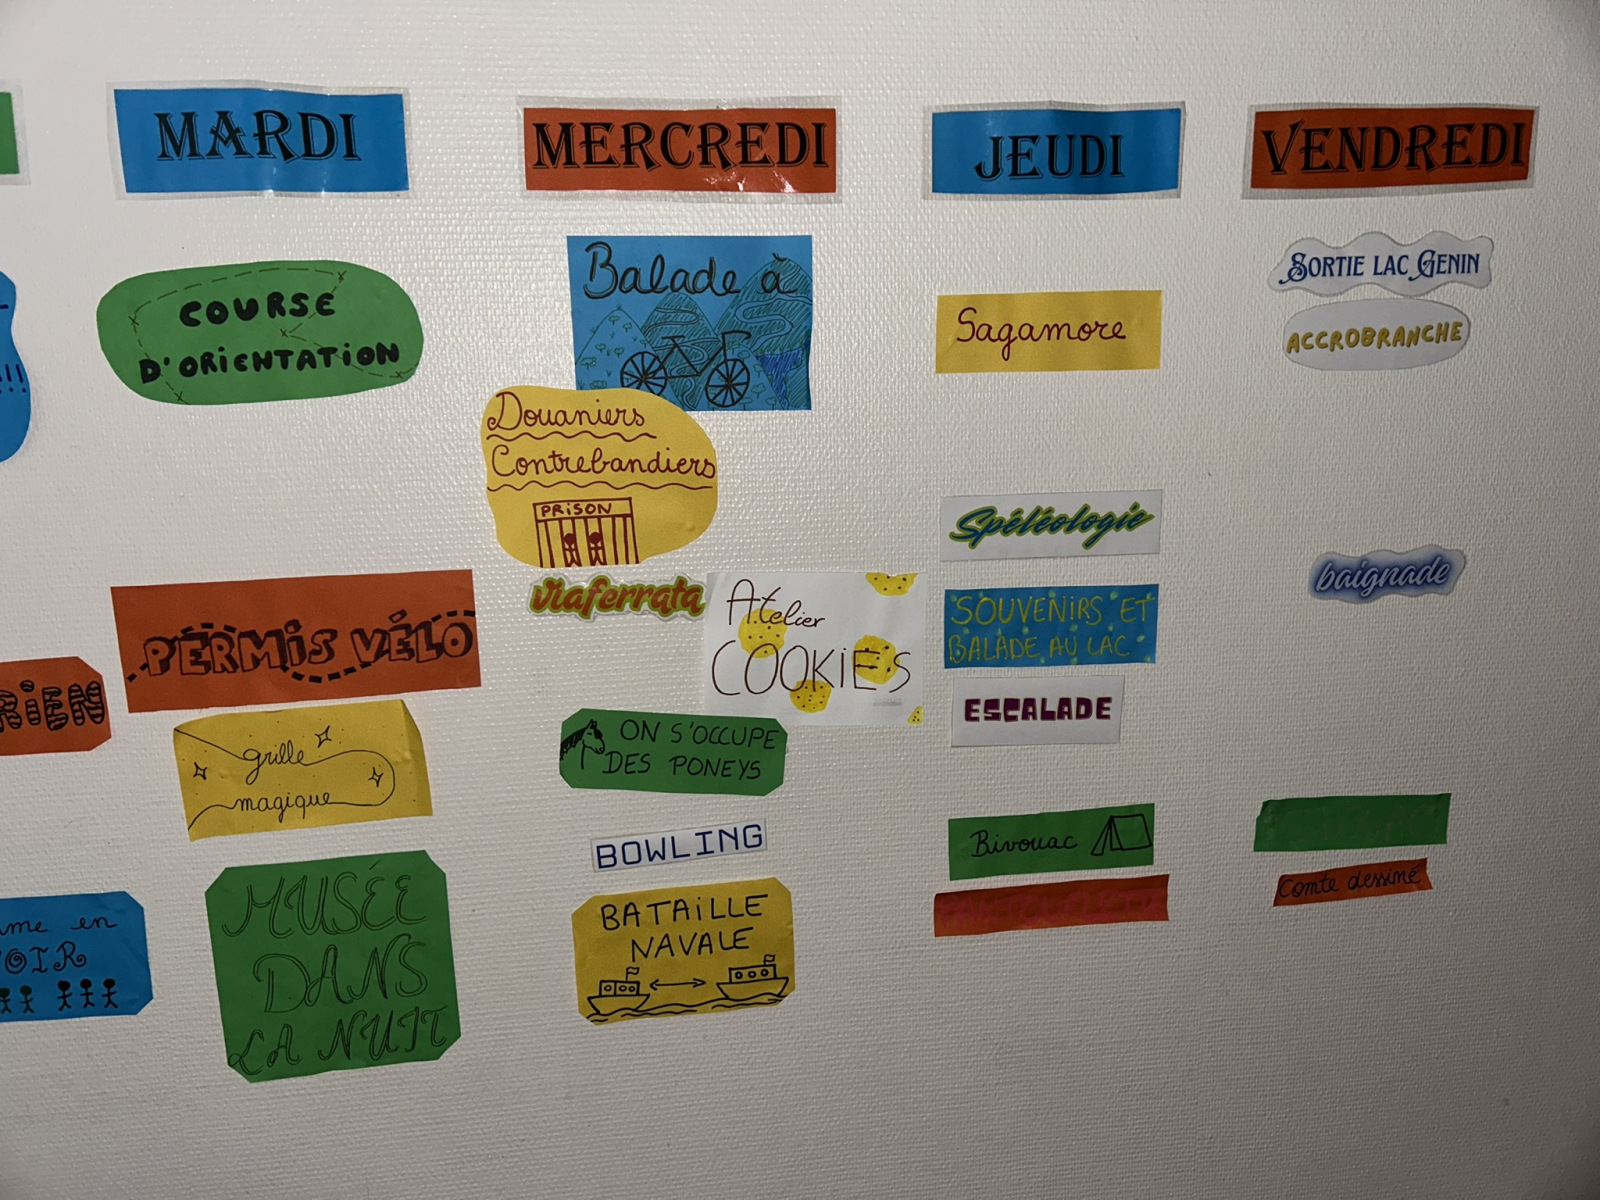 MARDI
COURSE
D'ORIENTATION
PERMIS VÉLO
grille
magique
MUSÉE
DANS
LA NUIT
MERCREDI
Balade à
Douaniers
Contrebandiers
PRISON
viaferrata
Atelier
COOKIES
ON S'OCCUPE
DES PONEYS
BOWLING
BATAILLE
NAVALE
JEUDI
Sagamore
Spéléologie
SOUVENIRS ET
BALADE AU LAC
ESCALADE
Bivouac
VENDREDI
SORTIE LAC GENIN
ACCROBRANCHE
baignade
Comte dessiné
RIEN
me en
OIR